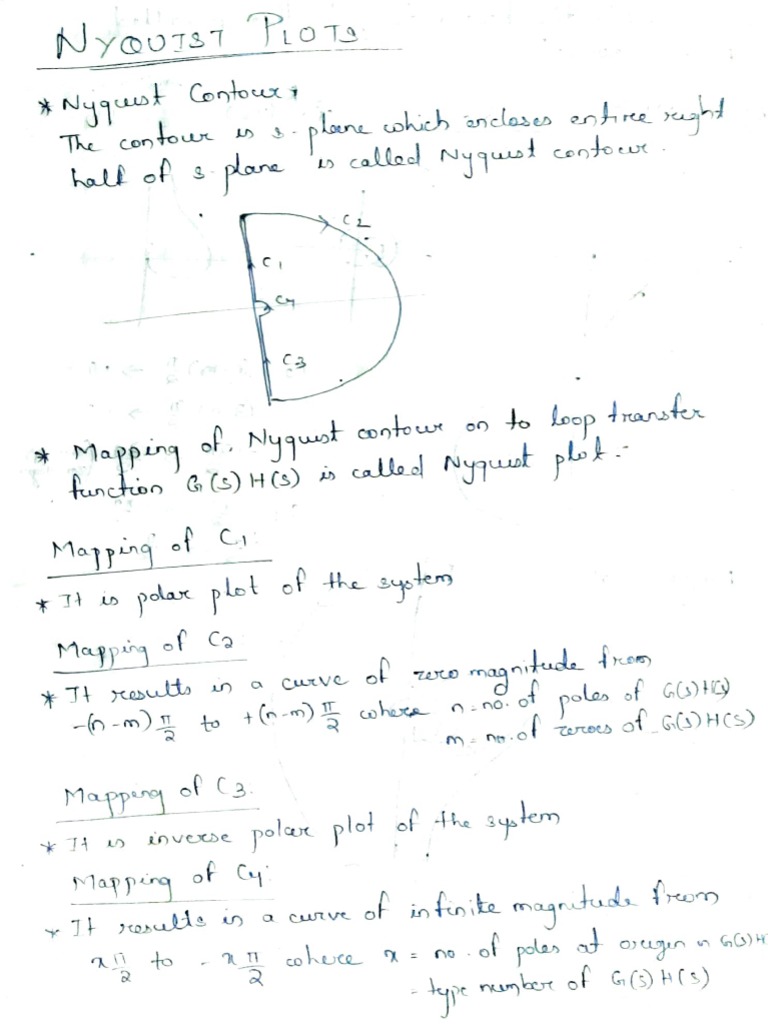 NYQUIST PLOTS
* Nyquist Contour:
The contour is s-plane which encloses entire right
half of s plane is called Nyquist contour.
C2
C1
C4
C3
* Mapping of Nyquist contour on to loop transfer
function G(s) H(s) is called Nyquist plot:-
Mapping of C1
* It is polar plot of the system
Mapping of C2
* It results in a curve of zero magnitude from
-(n-m) π/2 to +(n-m) π/2 where n = no. of poles of G(s)H(s)
m = no. of zeroes of G(s)H(s)
Mapping of C3.
* It is inverse polar plot of the system
Mapping of C4:
* It results in a curve of infinite magnitude from
x π/2 to - x π/2 where x = no. of poles at origin in G(s)H
= type number of G(s) H(s)